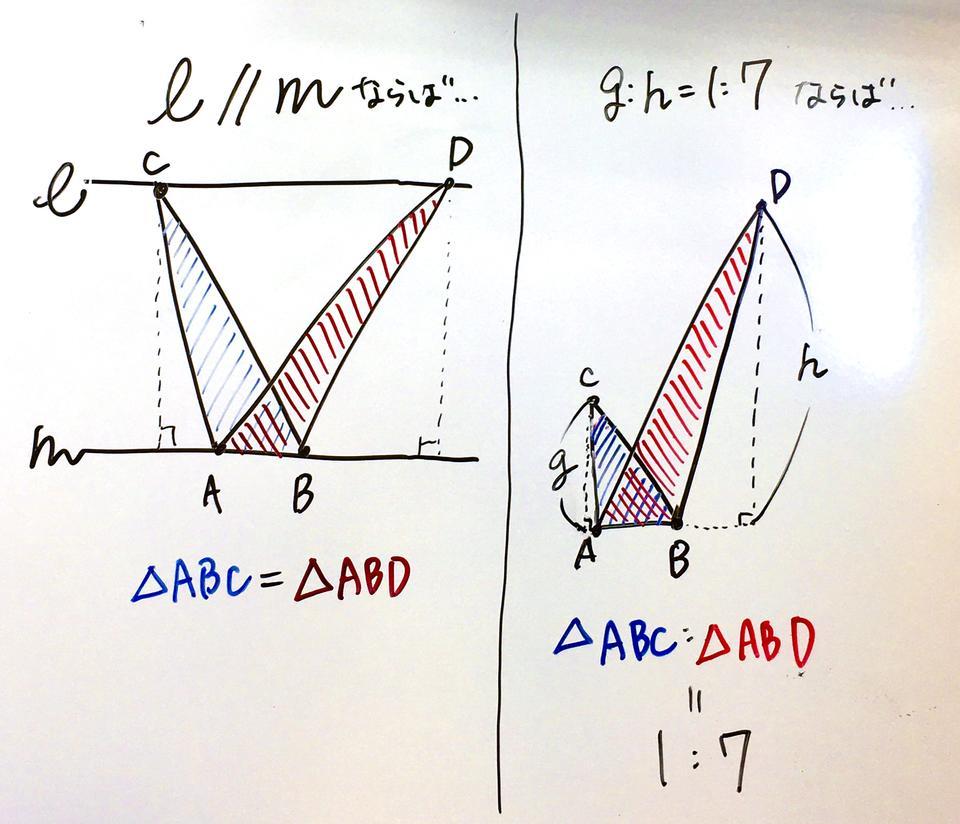 l // m ならば…
C D
l
m
A B
△ABC = △ABD
g:h=1:7 ならば…
D
h
C
g
A B
△ABC:△ABD
=
1:7